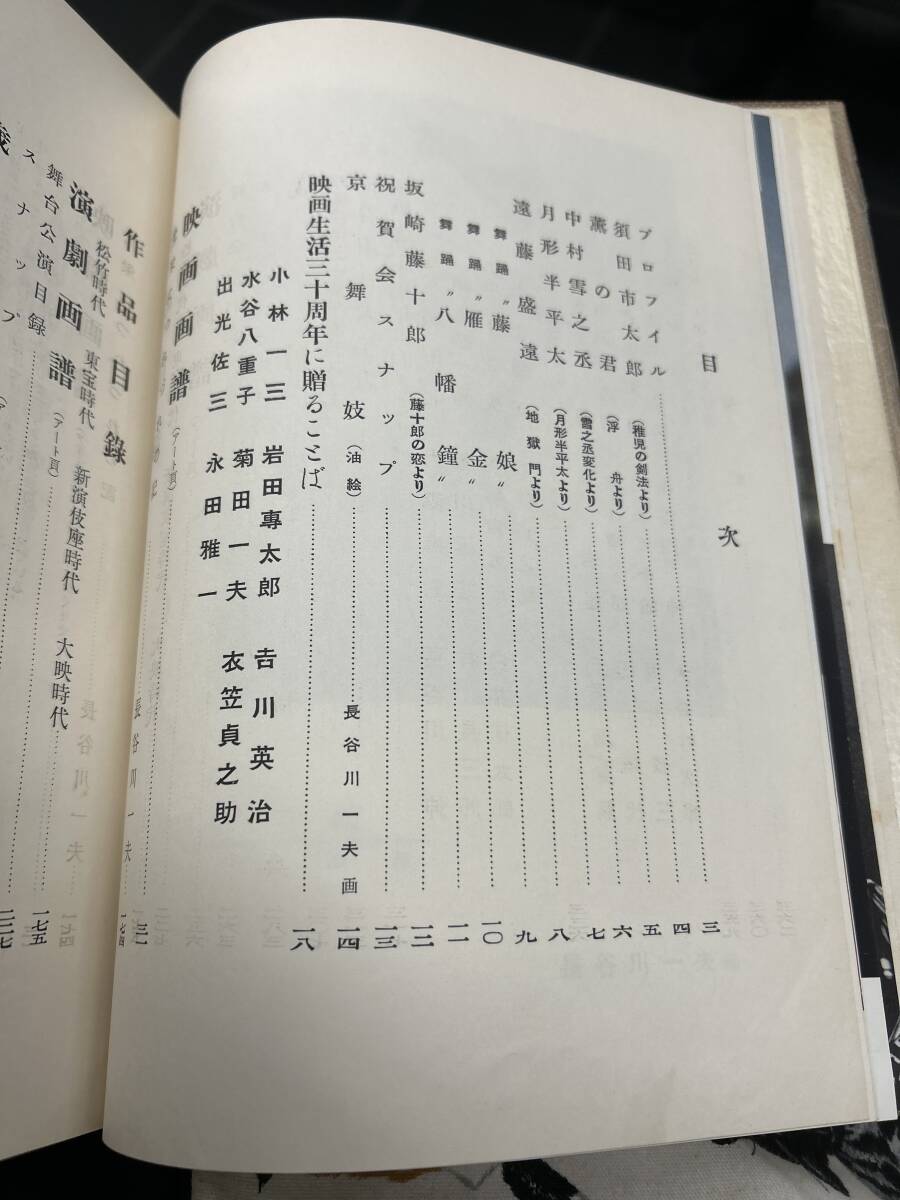 目次
プロフイル 三
須田市太郎 (稚児の剣法より) 四
薫の君 (浮舟より) 五
中村雪之丞 (雪之丞変化より) 六
月形半平太 (月形半平太より) 七
遠藤盛遠 (地獄門より) 八
舞踊〝藤娘〟 九
舞踊〝雁金〟 一〇
舞踊〝八幡鐘〟 一一
坂崎藤十郎 (藤十郎の恋より) 一二
祝賀会スナップ 一三
京舞妓 (油絵) 長谷川一夫画 一四
映画生活三十周年に贈ることば 一八
小林一三 岩田専太郎 吉川英治
水谷八重子 菊田一夫 衣笠貞之助
出光佐三 永田雅一
映画画譜 (アート頁) 三一
長谷川一夫 一七四
作品目録
松竹時代 東宝時代 新演伎座時代 大映時代
演劇画譜 (アート頁) 一七五
舞台公演目録 二二七
スナップ